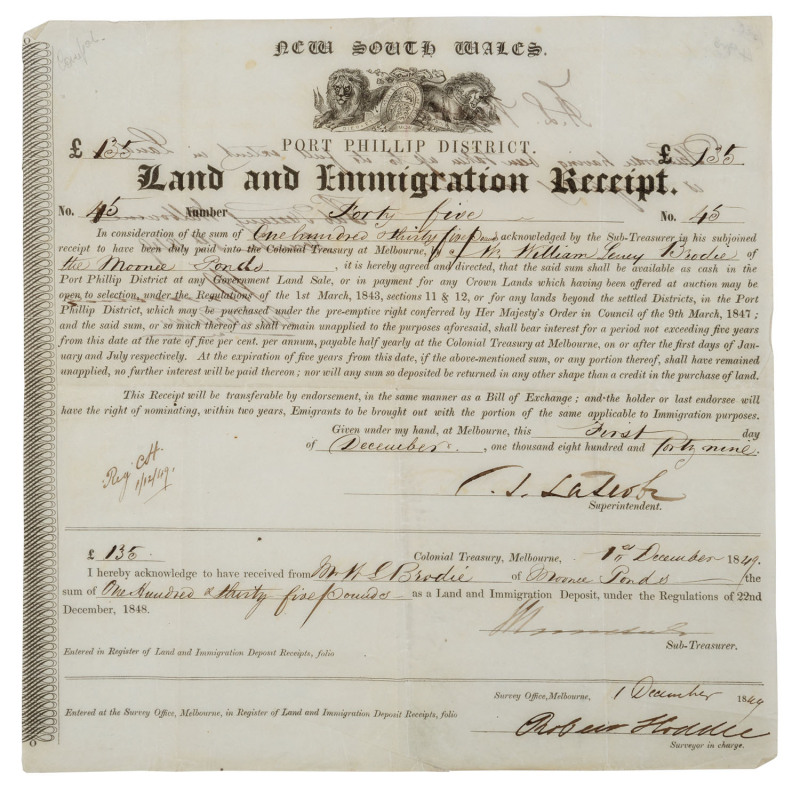 NEW SOUTH WALES.
PORT PHILLIP DISTRICT.
£ 135 £ 135
Land and Immigration Receipt.
No. 45 Number Forty five No. 45
In consideration of the sum of One hundred & thirty five Pounds acknowledged by the Sub-Treasurer in his subjoined
receipt to have been duly paid into the Colonial Treasury at Melbourne, by Mr. William Brodie of
the Moonee Ponds, it is hereby agreed and directed, that the said sum shall be available as cash in the
Port Phillip District at any Government Land Sale, or in payment for any Crown Lands which having been offered at auction may be
open to selection, under the Regulations of the 1st March, 1843, sections 11 & 12, or for any lands beyond the settled Districts, in the Port
Phillip District, which may be purchased under the pre-emptive right conferred by Her Majesty's Order in Council of the 9th March, 1847;
and the said sum, or so much thereof as shall remain unapplied to the purposes aforesaid, shall bear interest for a period not exceeding five years
from this date at the rate of five per cent. per annum, payable half yearly at the Colonial Treasury at Melbourne, on or after the first days of Jan-
uary and July respectively. At the expiration of five years from this date, if the above-mentioned sum, or any portion thereof, shall have remained
unapplied, no further interest will be paid thereon; nor will any sum so deposited be returned in any other shape than a credit in the purchase of land.
This Receipt will be transferable by endorsement, in the same manner as a Bill of Exchange; and the holder or last endorsee will
have the right of nominating, within two years, Emigrants to be brought out with the portion of the same applicable to Immigration purposes.
Given under my hand, at Melbourne, this First day
of December, one thousand eight hundred and forty nine.
Reg. CH
1/12/49.
C. J. LaTrobe
Superintendent.
£ 135 Colonial Treasury, Melbourne, 1st December 1849.
I hereby acknowledge to have received from Mr W L Brodie of Moonee Ponds the
sum of One Hundred & thirty five pounds as a Land and Immigration Deposit, under the Regulations of 22nd
December, 1848.
Sub-Treasurer.
Entered in Register of Land and Immigration Deposit Receipts, folio
Survey Office, Melbourne, 1 December 1849
Entered at the Survey Office, Melbourne, in Register of Land and Immigration Deposit Receipts, folio
Robert Hoddle
Surveyor in charge.